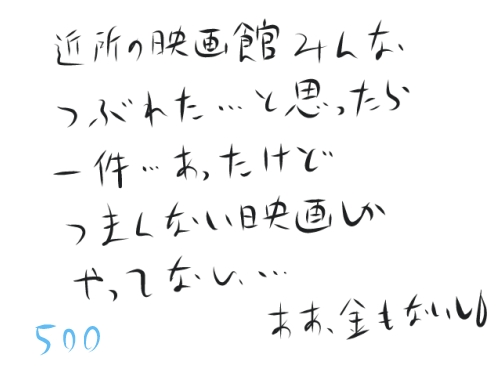 近所の映画館みんな
つぶれた…と思ったら
一件…あったけど
つまんない映画しか
やってない…
ああ、金もないし
500